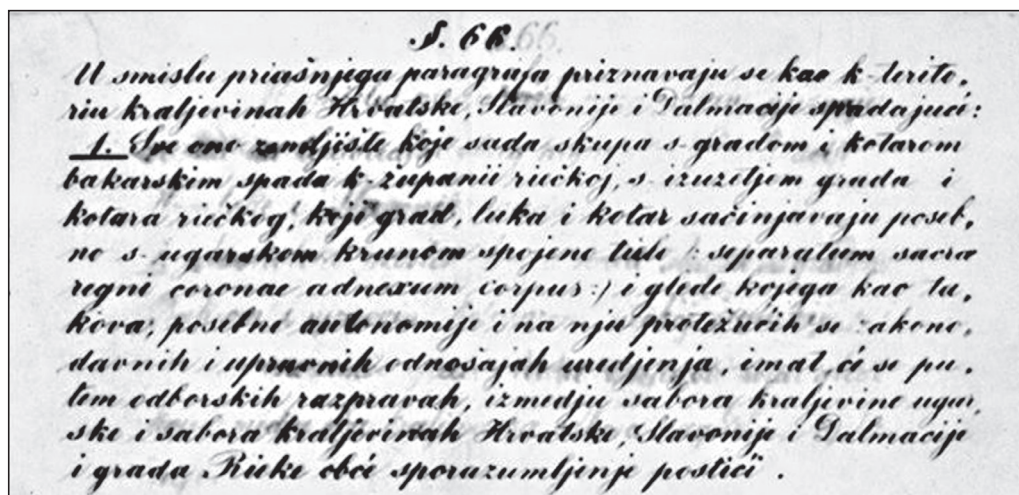 §. 66.
U smislu priašnjega paragrafa priznavaju se kao k-terito,
riu kraljevinah Hrvatske, Slavonije i Dalmacije spadajući:
1. Sve ono zemljište koje sada skupa s-gradom i kotarom
bakarskim spada k-županii riečkoj, s-izuzetjem grada i
kotara riečkog, koji grad, luka i kotar sačinjavaju poseb,
no s-ugarskom krunom spojeno tielo /: separatum sacra
regni coronae adnexum corpus:/ i glede kojega kao ta,
kova, posebne autonomije i na nju protežućih se zakono,
davnih i upravnih odnošajah uredjenja, imat, će se pu,
tem odborskih razpravah, izmedju sabora kraljevine ugar,
ske i sabora kraljevinah Hrvatske, Slavonije i Dalmacije
i grada Rieke obće sporazumljenje postići.